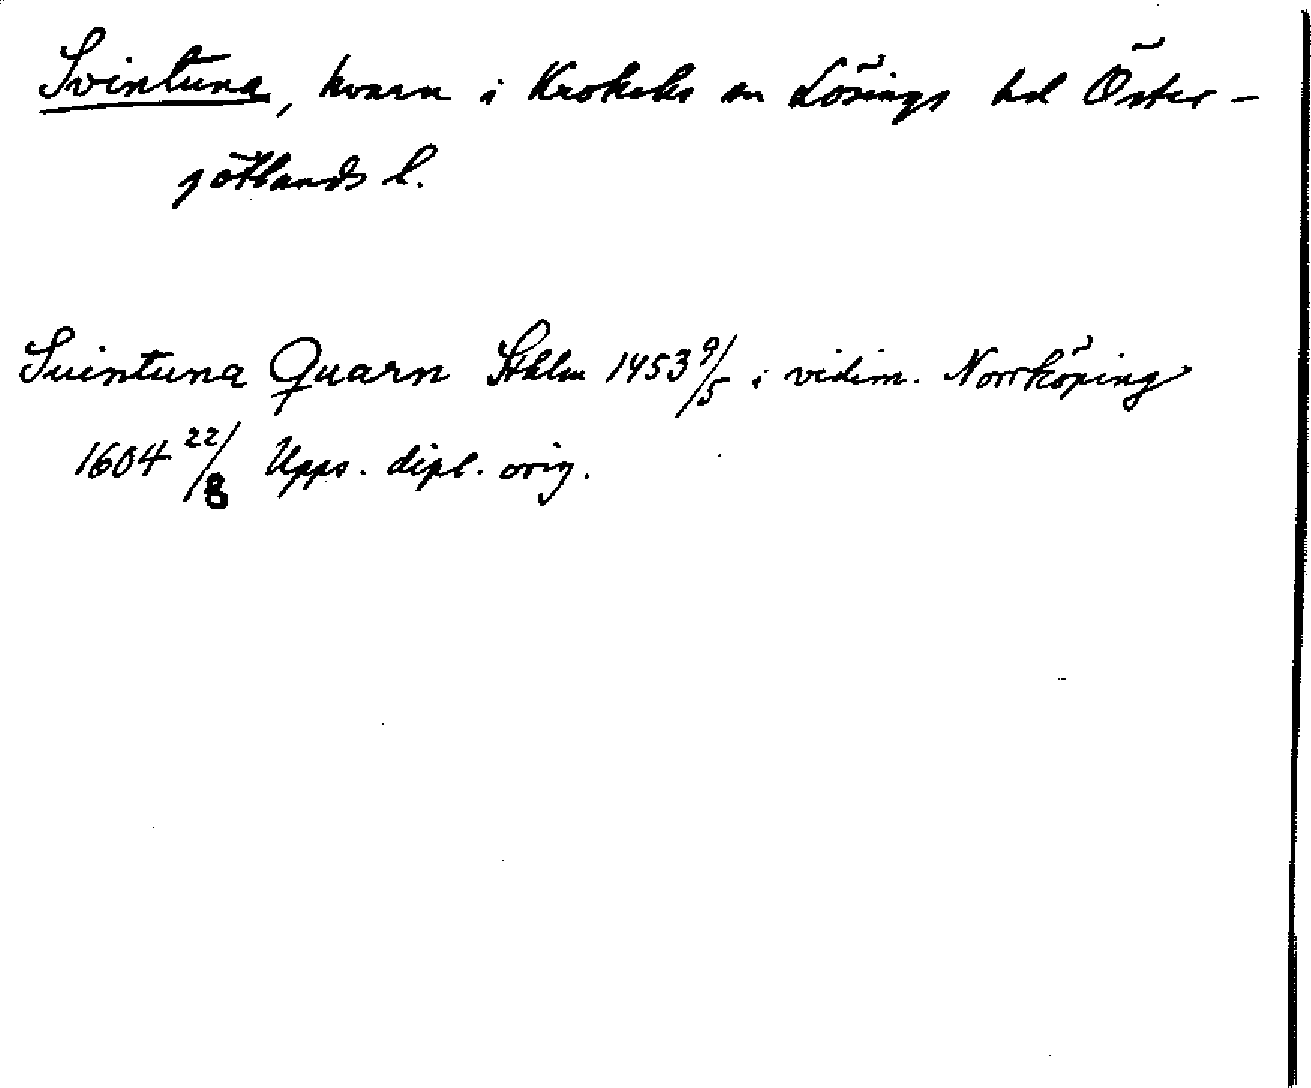 Svintuna, kvarn i Krokeks sn Lösings hd Öster-
götlands l.
Suintuna Quarn Sthlm 1453 9/5 i vidim. Norrköping
1604 22/8 Upps. dipl. orig.